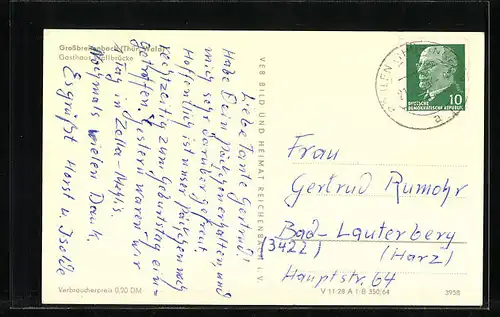 Großbreitenbach (Thür. Wald)
Gasthaus
Liebe Tante Gertrud!
Habe Dein Päkchen erhalten, und
mich sehr darüber gefreut.
Hoffentlich ist unser Päkchen noch
rechtzeitig zum Geburtstag ein-
getroffen. Gestern waren wir
1 Tag in Zella-Mehlis.
Nochmals vielen Dank.
Es grüßt Horst u. Iselde
Verbraucherpreis 0,20 DM
VEB BILD UND HEIMAT REICHENBACH i. V.
V 11-28 A 1-B 350/64
3958
10
DEUTSCHE
DEMOKRATISCHE REPUBLIK
Frau
Gertrud Rumohr
Bad-Lauterberg
(3422) (Harz)
Hauptstr. 64